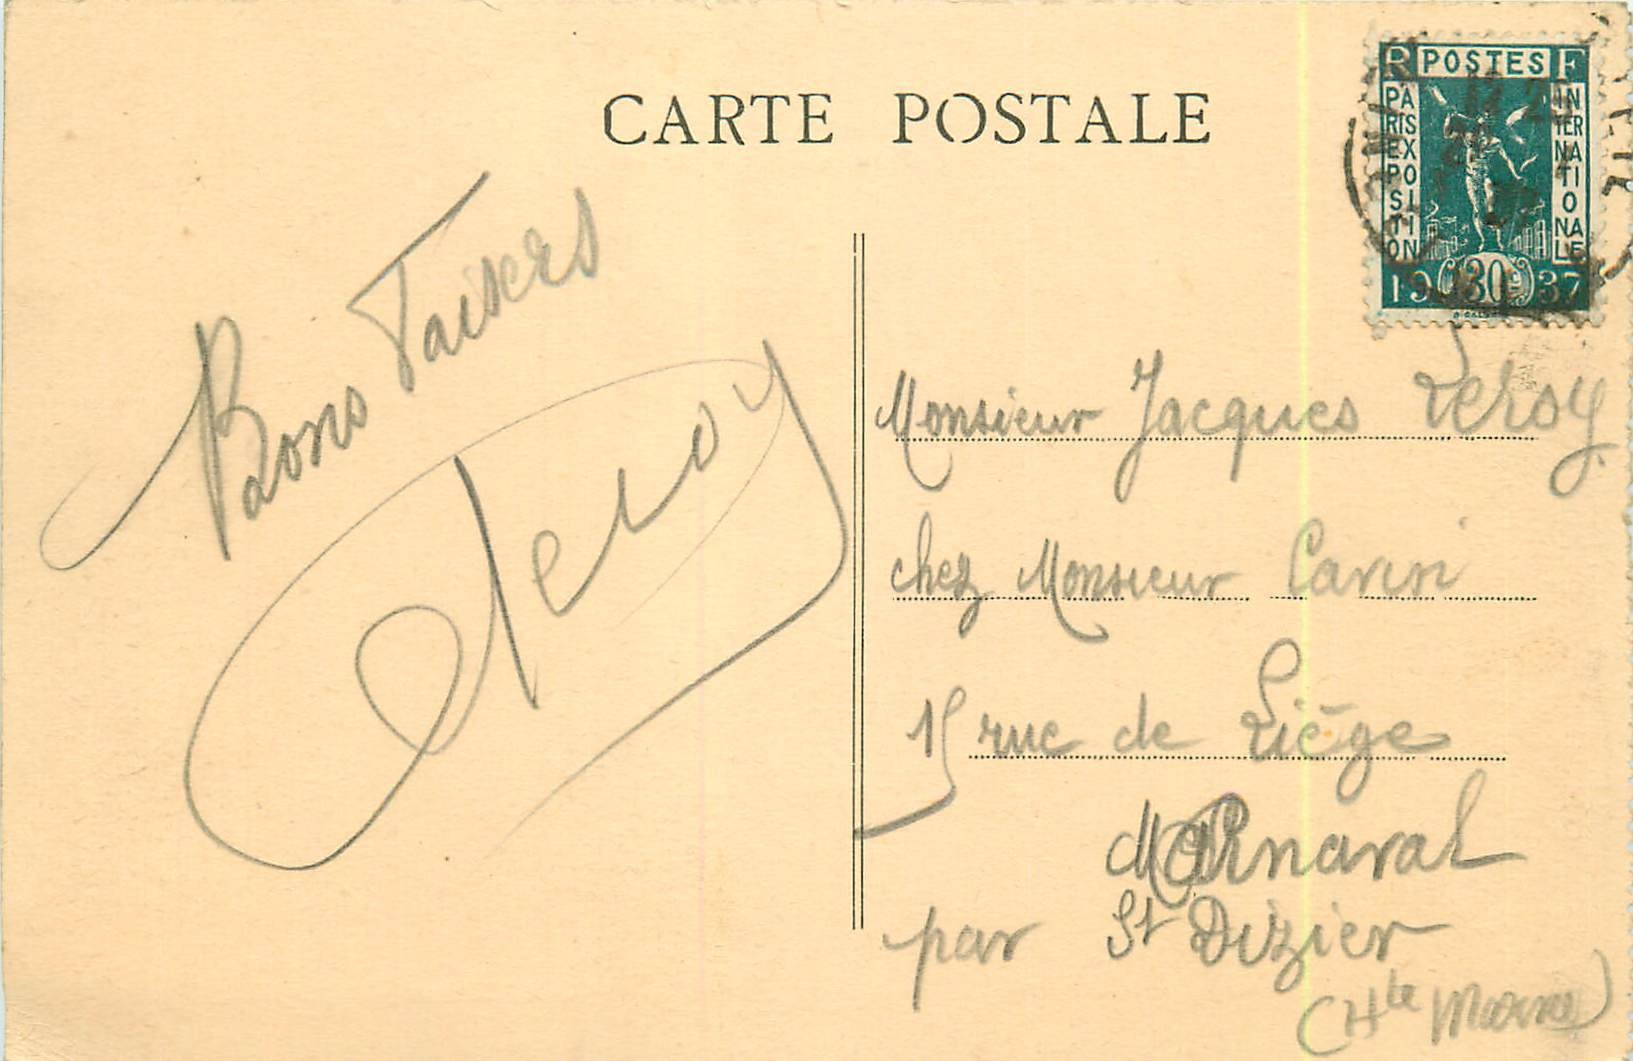 CARTE POSTALE
R POSTES F
PARIS EXPOSITION
INTERNATIONALE
1937
30c
Bons Baisers
Leroy
Monsieur Jacques Leroy
chez Monsieur Carini
15 rue de Liège
Marnaval
par St Dizier
(Hte Marne)